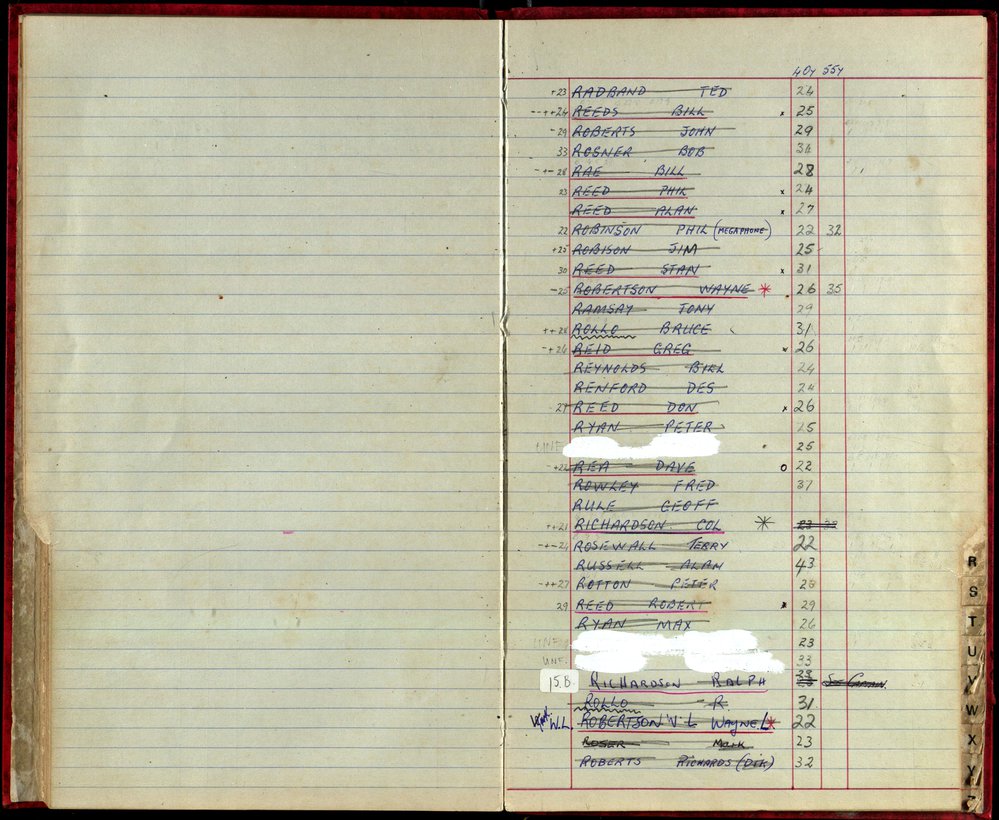 40y 55y
+23 RADBAND TED 24
--++24 REEDS BILL x 25
-29 ROBERTS JOHN 29
33 ROSNER BOB 34
-+-28 RAE BILL 28
23 REED PHIL x 24
REED ALAN x 27
22 ROBINSON PHIL (MEGAPHONE) 22 32
+25 ROBISON JIM 25
30 REED STAN x 31
-25 ROBERTSON WAYNE * 26 35
RAMSAY TONY 29
++28 ROLLO BRUCE 31
-+26 REID GREG x 26
REYNOLDS BILL 24
RENFORD DES 24
27 REED DON x 26
RYAN PETER 25
UNF. 25
-+22 REA DAVE o 22
ROWLEY FRED 37
RULE GEOFF
++21 RICHARDSON COL * 23 28
-+-24 ROSEWALL TERRY 22
RUSSELL ALAN 43
-++27 ROTTON PETER 28
29 REED ROBERT x 29
RYAN MAX 26
UNF. 23
UNF. 33
15.B. RICHARDSON RALPH See Captain.
ROLLO R. 31
W.L. ROBERTSON V.L WAYNE L * 22
ROSER Mark 23
ROBERTS RICHARDS (Dik) 32
R
S
T
U
V
W
X
Y
Z